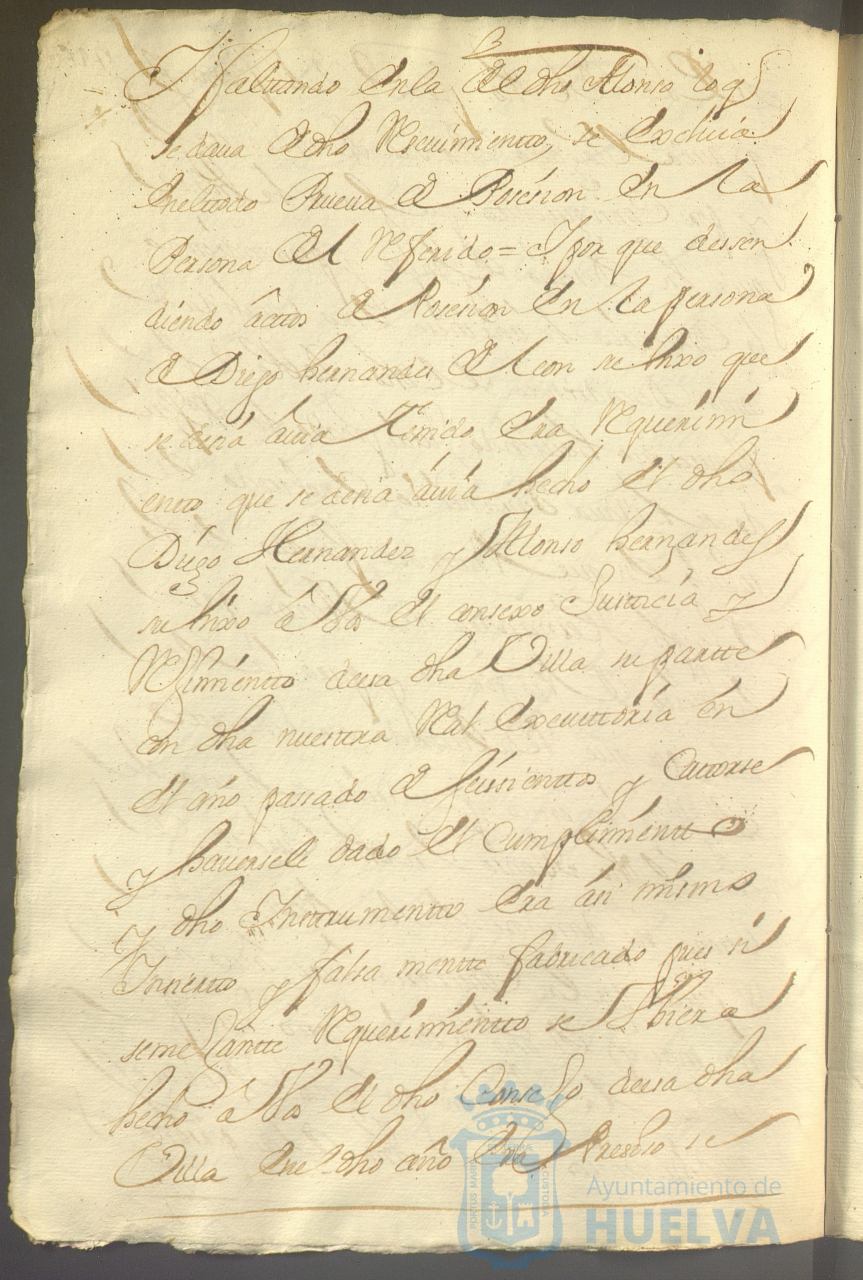 Y faltando en la del dho Alonso loq
se dava el dho Resevimientto, se excluia
en el todo Prueva de Posesion en la
Persona del Referido = Y por que dessen
diendo âctos de Posesion en la persona
de Diego hernandes del con su hixo que
se decia âvia Tenido era Requerimi
ento que se decia âvia hecho el dho
Diego Hernandez y Alonso hernandes
su hixo â Vos el consexo Justicia y
Reximientto de esa dha Villa su partte
con dha nuestra Real Executtoria en
el año passado de seissienttos y Cattorse
y haversele dado el Cumplimientto
y dho Instrumentto era âsi mismo
Insierto y falsa mentte fabricado pues si
semejantte Requerimientto se hubiera
hecho â Vos el dho Consejo de esa dha
Villa en el dho año era Presiso se
Ayuntamiento de
HUELVA